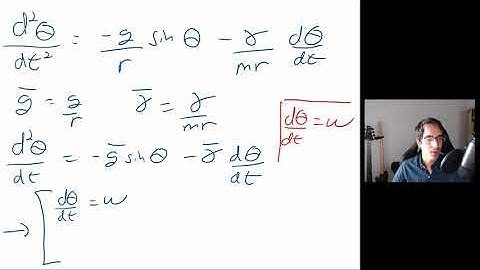 d²θ/dt² = -g/r sin θ - γ/mr dθ/dt
g̅ = g/r γ̅ = γ/mr
dθ/dt = w
d²θ/dt = -g̅ sin θ - γ̅ dθ/dt
→ [ dθ/dt = w